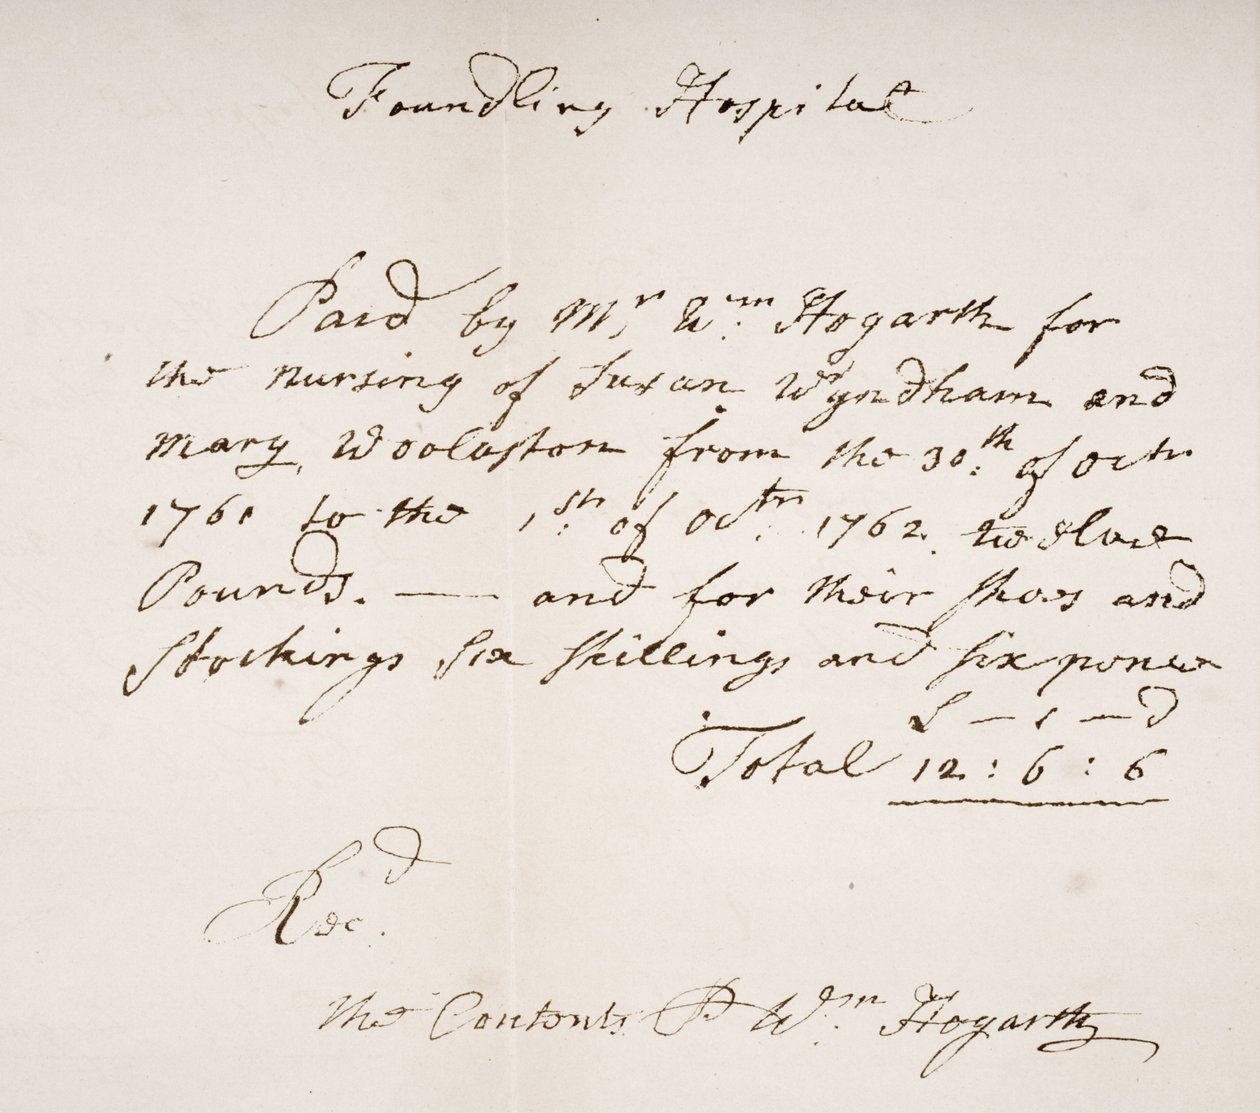 Foundling Hospital
Paid by Mr. Wm. Hogarth for
the nursing of Susan Wyndham and
Mary Woolaston from the 30th. of Octr.
1761 to the 1st. of Octr. 1762. twelve
Pounds. — and for their Shoes and
Stockings Six Shillings and six pence
L — s — d
Total 12 : 6 : 6
Recd.
the Contents P Wm. Hogarth